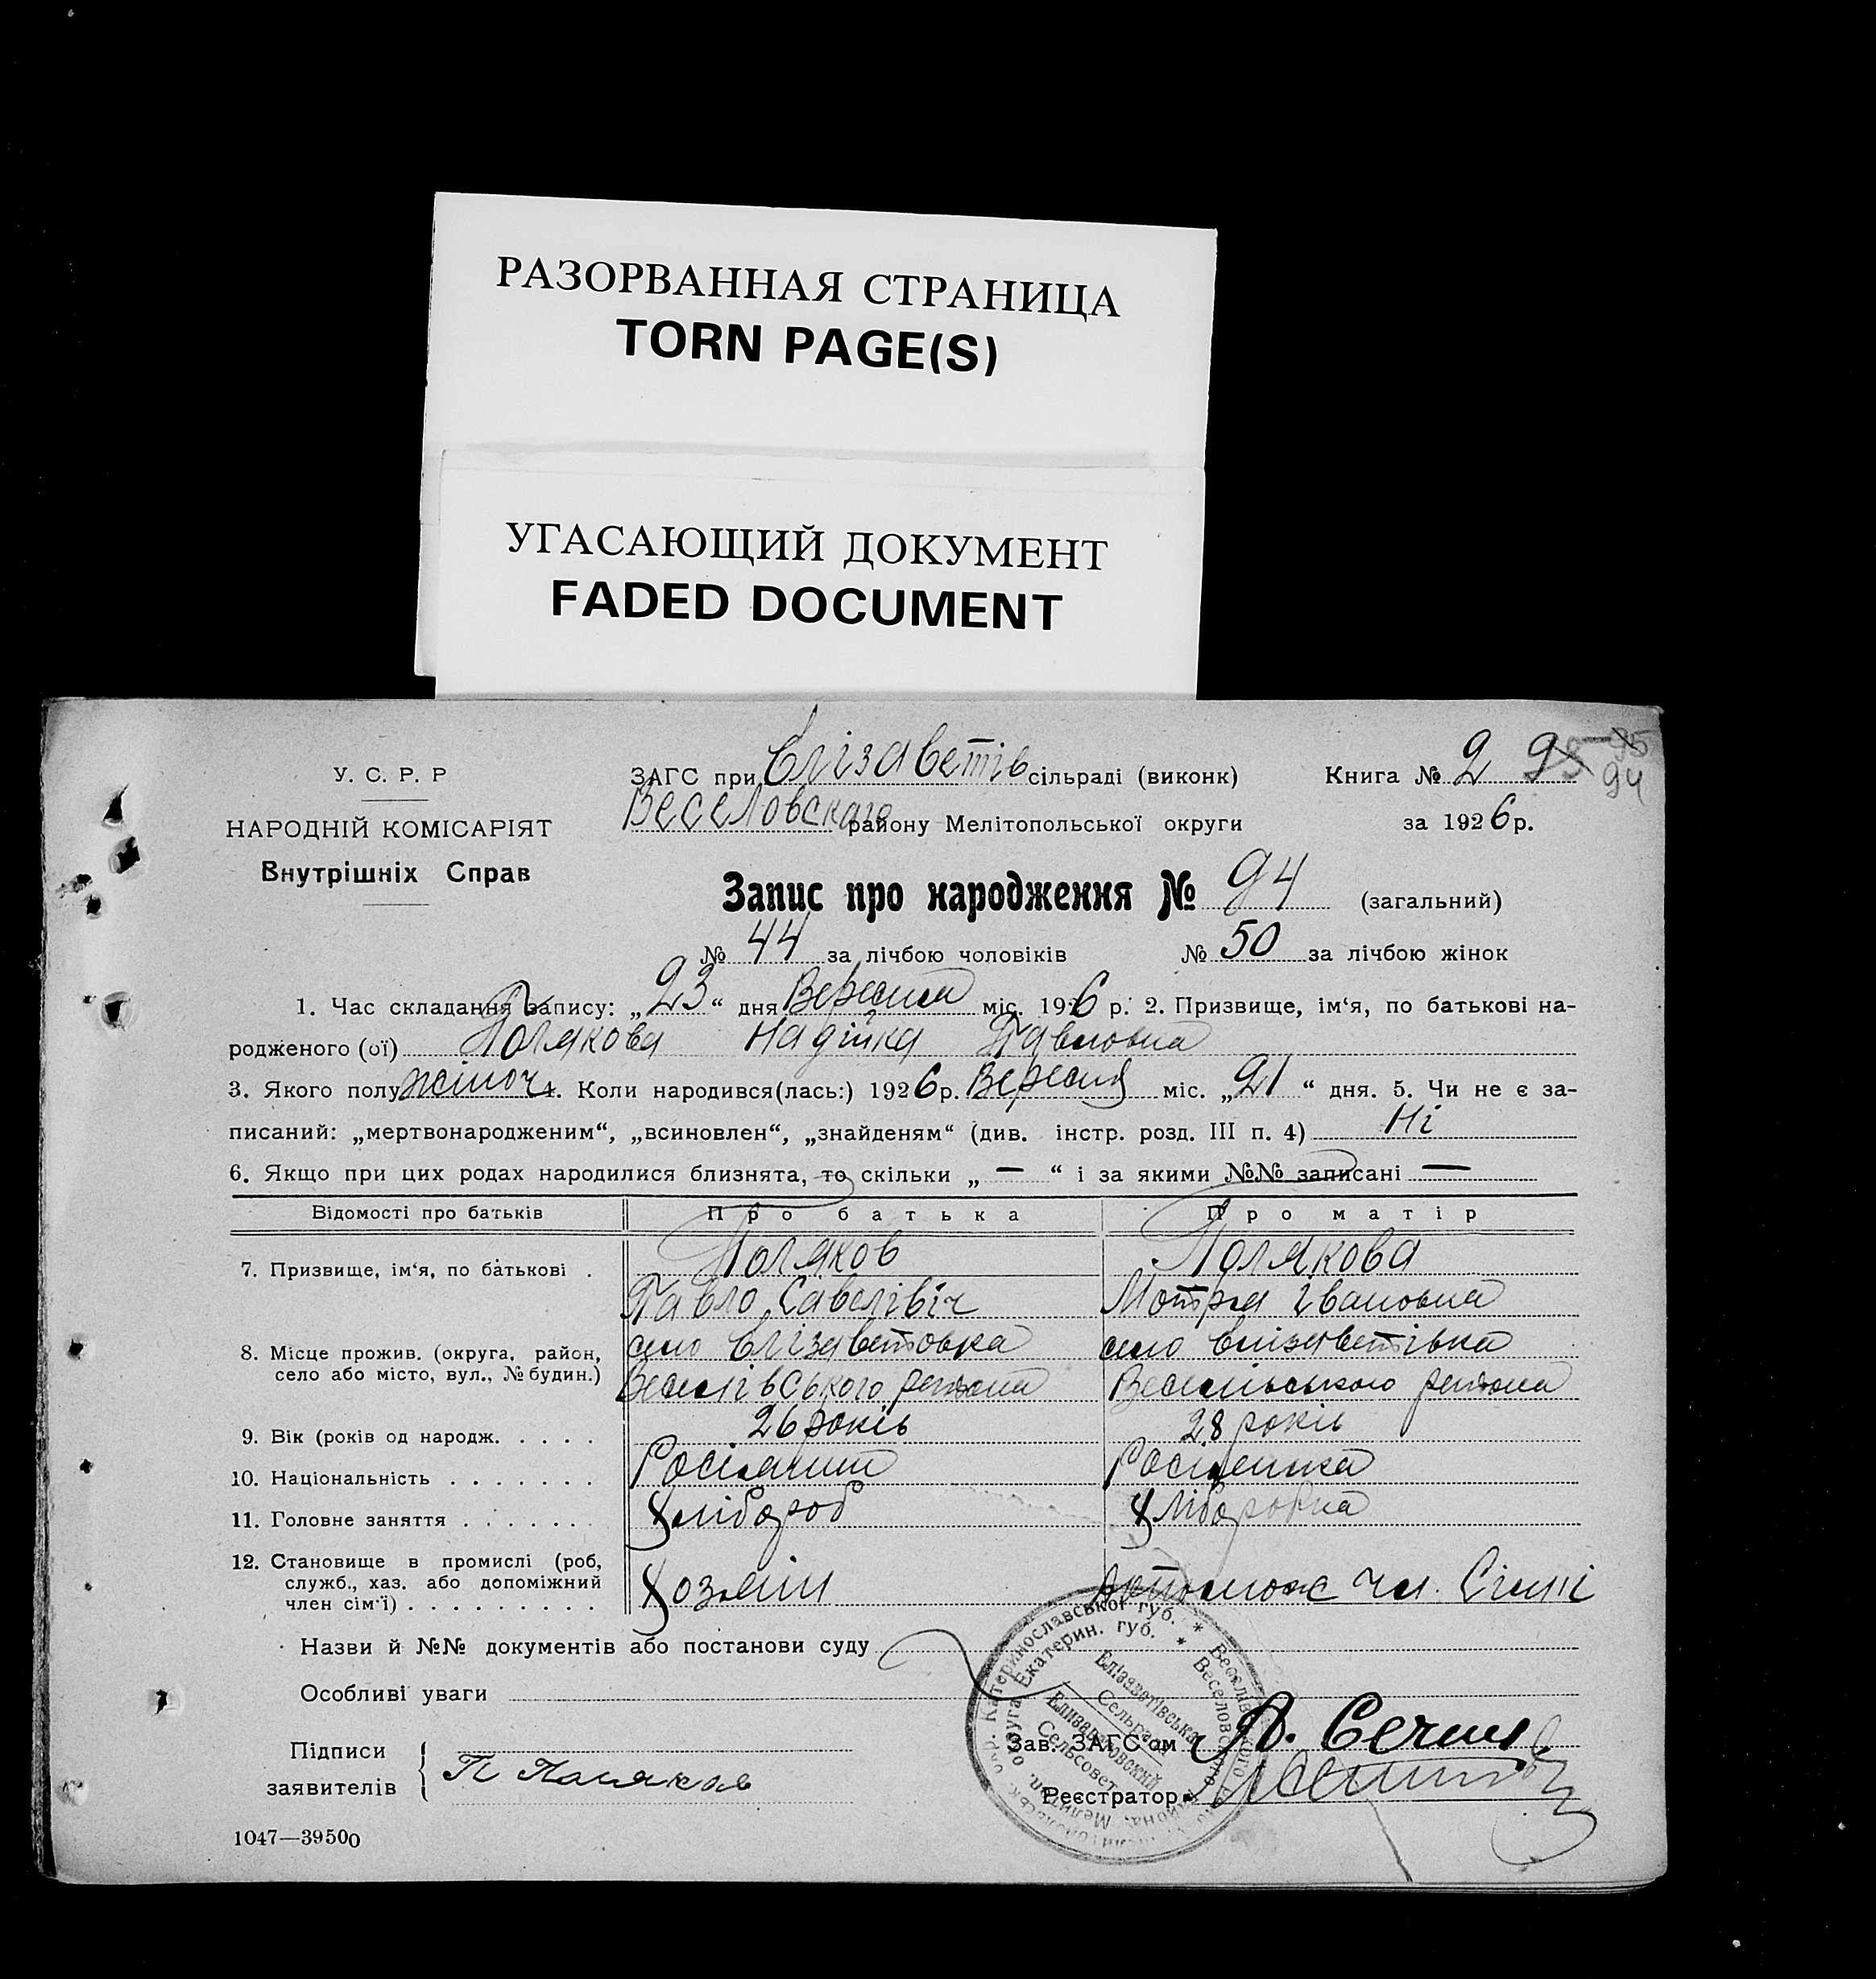 РАЗОРВАННАЯ СТРАНИЦА
TORN PAGE(S)
УГАСАЮЩИЙ ДОКУМЕНТ
FADED DOCUMENT
У. С. Р. Р
НАРОДНІЙ КОМІСАРІЯТ
Внутрішніх Справ
ЗАГС при Єлізаветів сільраді (виконк)
Веселовскаго району Мелітопольської округи
Книга № 2 95 95
94
за 1926 р.
Запис про народження № 94 (загальний)
№ 44 за лічбою чоловіків № 50 за лічбою жінок
1. Час складання запису: „23“ дня Вересня міс. 1926 р. 2. Призвище, ім‘я, по батькові на-
родженого (ої) Полякова Надійка Павловна
3. Якого полу жіноч 4. Коли народився(лась:) 1926 р. Вересня міс. „21“ дня. 5. Чи не є за-
писаний: „мертвонародженим“, „всиновлен“, „знайденям“ (див. інстр. розд. III п. 4) Ні
6. Якщо при цих родах народилися близнята, то скільки „—“ і за якими №№ записані —
Відомості про батьків Про батька Про матір
7. Призвище, ім‘я, по батькові . Поляков Полякова
Павло Савелівіч Мотря Івановна
8. Місце прожив. (округа, район, село Єлізаветовка село Єлізаветівка
село або місто, вул., № будин.) Веселівського района Весельського района
9. Вік (років од народж. . . . . 26 років 28 років
10. Національність . . . . . . . Росіянин Росіянка
11. Головне заняття . . . . . . . Хлібороб Хліборобка
12. Становище в промислі (роб,
служб., хаз. або допоміжний Хозяін допомож чл. Сімні
член сім‘ї) . . . . . . . . .
Назви й №№ документів або постанови суду
Особливі уваги
Підписи
заявителів П Поляков
Зав. ЗАГС‘ом
Реєстратор
Катеринославської губ. * Веселівського
округа Екатерин. губ. * Веселовского
Елізаветівська
Сельрада
Елизаветовский
Сельсовет
1047—39500